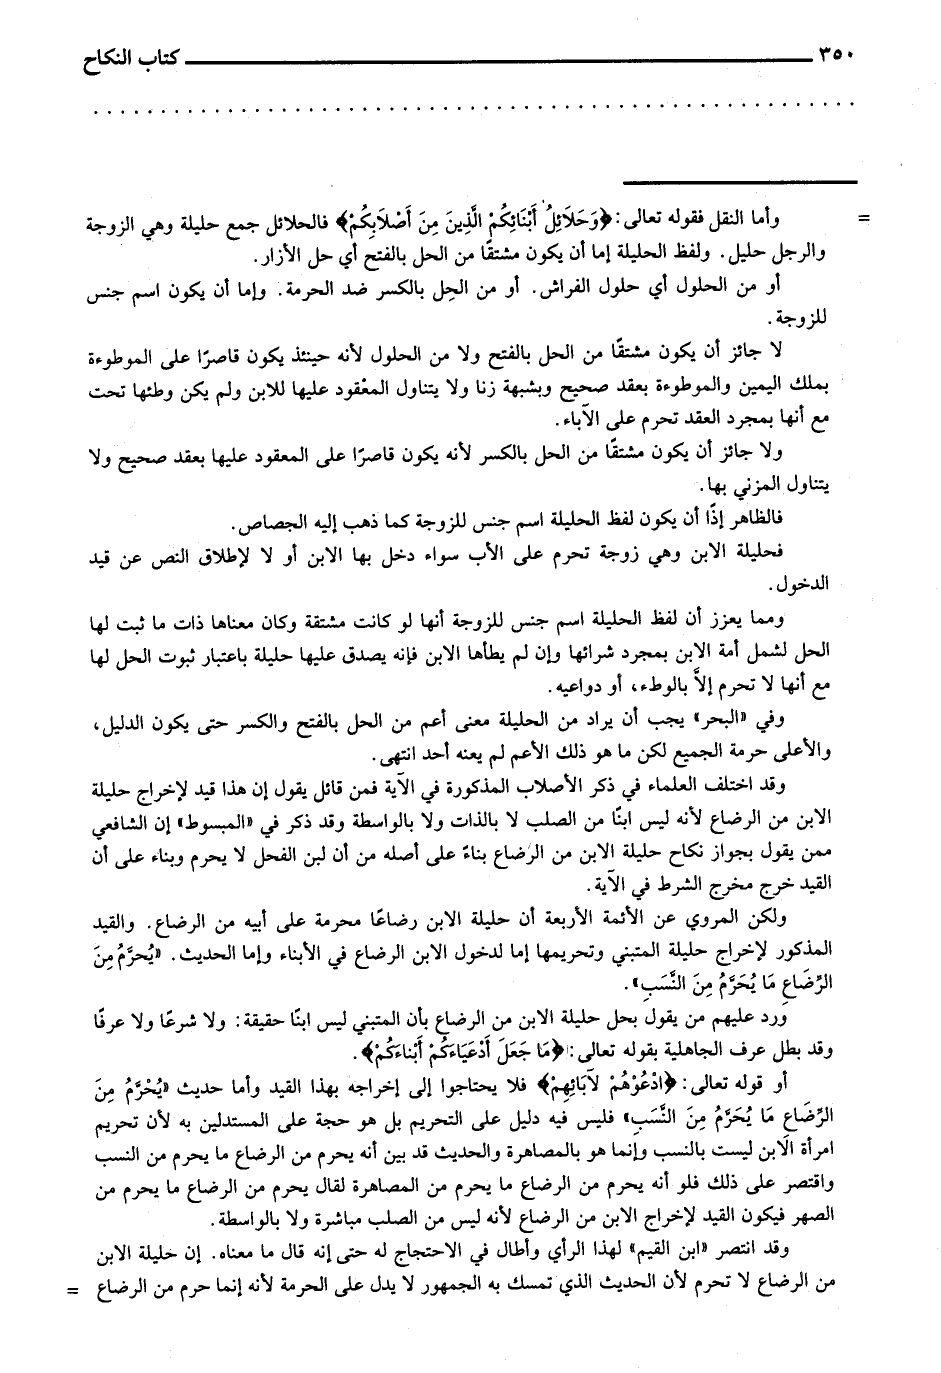 ٣٥٠ كتاب النكاح
= وأما النقل فقوله تعالى: ﴿وَحَلَائِلُ أَبْنَائِكُمْ الَّذِينَ مِنَ أَصْلَابِكُمْ﴾ فالحلائل جمع حليلة وهي الزوجة
والرجل حليل. ولفظ الحليلة إما أن يكون مشتقًا من الحل بالفتح أي حل الأزار.
أو من الحلول أي حلول الفراش. أو من الحِل بالكسر ضد الحرمة. وإما أن يكون اسم جنس
للزوجة.
لا جائز أن يكون مشتقًا من الحل بالفتح ولا من الحلول لأنه حينئذ يكون قاصرًا على الموطوءة
بملك اليمين والموطوءة بعقد صحيح وبشبهة زنا ولا يتناول المعْقود عليها للابن ولم يكن وطئها تحت
مع أنها بمجرد العقد تحرم على الآباء.
ولا جائز أن يكون مشتقًا من الحل بالكسر لأنه يكون قاصرًا على المعقود عليها بعقد صحيح ولا
يتناول المزني بها.
فالظاهر إذًا أن يكون لفظ الحليلة اسم جنس للزوجة كما ذهب إليه الجصاص.
فحليلة الابن وهي زوجة تحرم على الأب سواء دخل بها الابن أو لا لإطلاق النص عن قيد
الدخول.
ومما يعزز أن لفظ الحليلة اسم جنس للزوجة أنها لو كانت مشتقة وكان معناها ذات ما ثبت لها
الحل لشمل أمة الابن بمجرد شرائها وإن لم يطأها الابن فإنه يصدق عليها حليلة باعتبار ثبوت الحل لها
مع أنها لا تحرم إلاَّ بالوطء، أو دواعيه.
وفي «البحر» يجب أن يراد من الحليلة معنى أعم من الحل بالفتح والكسر حتى يكون الدليل،
والأعلى حرمة الجميع لكن ما هو ذلك الأعم لم يعنه أحد انتهى.
وقد اختلف العلماء في ذكر الأصلاب المذكورة في الآية فمن قائل يقول إن هذا قيد لإخراج حليلة
الابن من الرضاع لأنه ليس ابنًا من الصلب لا بالذات ولا بالواسطة وقد ذكر في «المبسوط» إن الشافعي
ممن يقول بجواز نكاح حليلة الابن من الرضاع بناءً على أصله من أن لبن الفحل لا يحرم وبناء على أن
القيد خرج مخرج الشرط في الآية.
ولكن المروي عن الأئمة الأربعة أن حليلة الابن رضاعًا محرمة على أبيه من الرضاع. والقيد
المذكور لإخراج حليلة المتبني وتحريمها إما لدخول الابن الرضاع في الأبناء وإما الحديث. «يُحرَّمُ مِنَ
الرَّضَاعِ مَا يُحَرَّمُ مِنَ النَّسَبِ».
ورد عليهم من يقول بحل حليلة الابن من الرضاع بأن المتبني ليس ابنًا حقيقة: ولا شرعًا ولا عرفًا
وقد بطل عرف الجاهلية بقوله تعالى: ﴿مَا جَعَلَ أَدْعَيَاءَكُمْ أَبْنَاءَكُمْ﴾.
أو قوله تعالى: ﴿ادْعُوْهُمْ لآبَائِهِمْ﴾ فلا يحتاجوا إلى إخراجه بهذا القيد وأما حديث «يُحْرَّمُ مِنَ
الرِّضَاعِ مَا يُحَرَّمُ مِنَ النَّسَبِ» فليس فيه دليل على التحريم بل هو حجة على المستدلين به لأن تحريم
امرأة الابن ليست بالنسب وإنما هو بالمصاهرة والحديث قد بين أنه يحرم من الرضاع ما يحرم من النسب
واقتصر على ذلك فلو أنه يحرم من الرضاع ما يحرم من المصاهرة لقال يحرم من الرضاع ما يحرم من
الصهر فيكون القيد لإخراج الابن من الرضاع لأنه ليس من الصلب مباشرة ولا بالواسطة.
وقد انتصر «ابن القيم» لهذا الرأي وأطال في الاحتجاج له حتى إنه قال ما معناه. إن حليلة الابن
من الرضاع لا تحرم لأن الحديث الذي تمسك به الجمهور لا يدل على الحرمة لأنه إنما حرم من الرضاع =